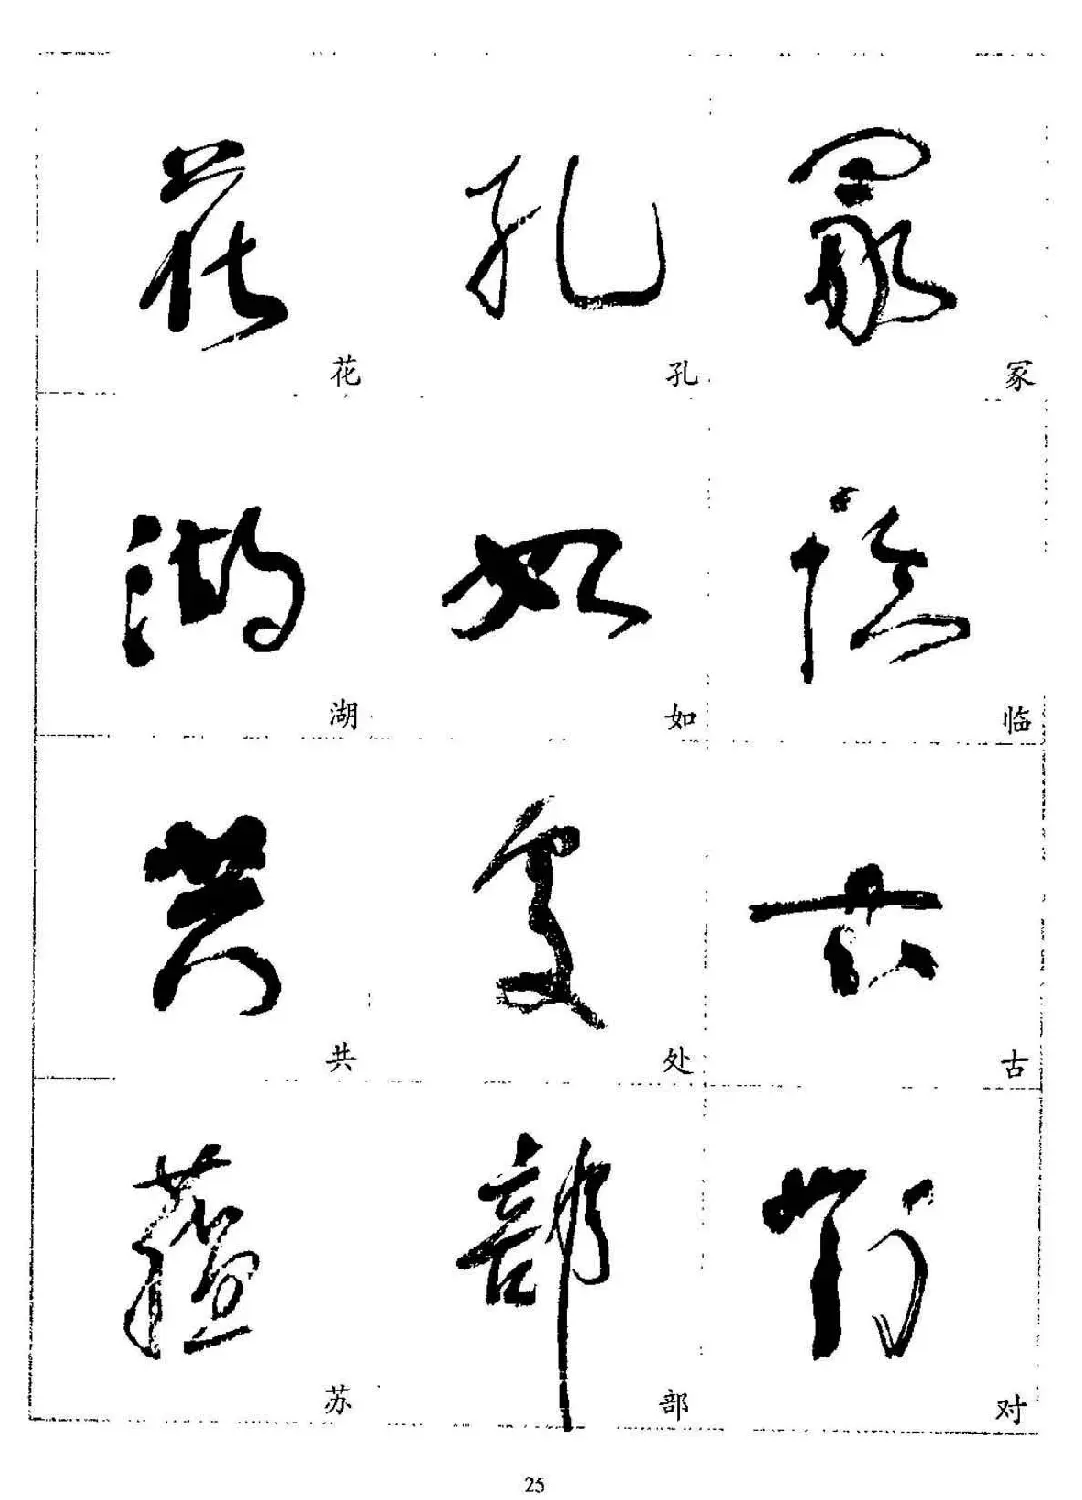 花 孔 冢
湖 如 临
共 处 古
苏 部 对
25